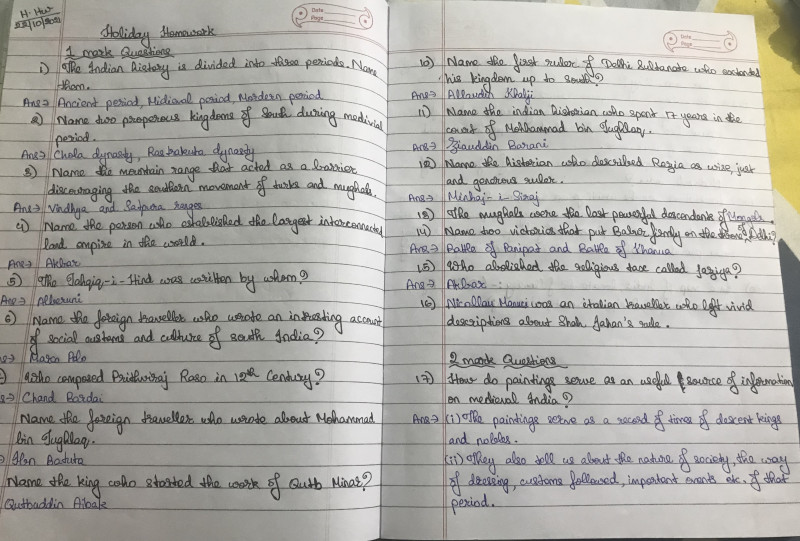 H.Hw
22/10/2021
Date
Page
Holiday Homework
1 mark Questions
1) The Indian history is divided into three periods. Name
them.
Ans→ Ancient period, Midieval period, Mordern period
2) Name two properous kingdoms of South during medivial
period.
Ans→ Chola dynasty, Rastrakuta dynasty
3) Name the mountain range that acted as a barrier
discouraging the southern movement of turks and mughals.
Ans→ Vindhya and Satpura ranges
4) Name the person who established the largest interconnected
land empire in the world.
Ans→ Akbar
5) The Tahqiq-i-Hind was written by whom?
Ans→ Alberuni
6) Name the foreign traveller who wrote an intresting account
of social customs and culture of south India?
s→ Marco Polo
) Who composed Prithviraj Raso in 12th Century?
s→ Chand Bardai
Name the foreign traveller who wrote about Mohammad
bin Tughlaq.
→ Ibn Batuta
Name the king who started the work of Qutb Minar?
Qutbaddin Aibak
Date
Page
10) Name the first ruler of Delhi Sultanate who extended
his kingdom up to south?
Ans→ Allaudin Khalji
11) Name the indian historian who spent 17 years in the
court of Mohhammad bin Tughlaq.
Ans→ Ziauddin Barani
12) Name the historian who described Razia as wise, just
and generous ruler.
Ans→ Minhaj-i-Siraj
13) The mughals were the last powerful descendents of Mongols.
14) Name two victories that put Babar firmly on the throne of Delhi?
Ans→ Battle of Panipat and Battle of Khanua
15) Who abolished the religious taxe called jaziya?
Ans→ Akbar
16) Nicollau Manuci was an italian traveller who left vivid
descriptions about Shah Jahan's rule.
2 mark Questions
17) How do paintings serve as an useful source of information
on medieval India?
Ans→ (i) The paintings serve as a record of times of descent kings
and nobles.
(ii) They also tell us about the nature of society, the way
of dressing, customs followed, important events etc. of that
period.